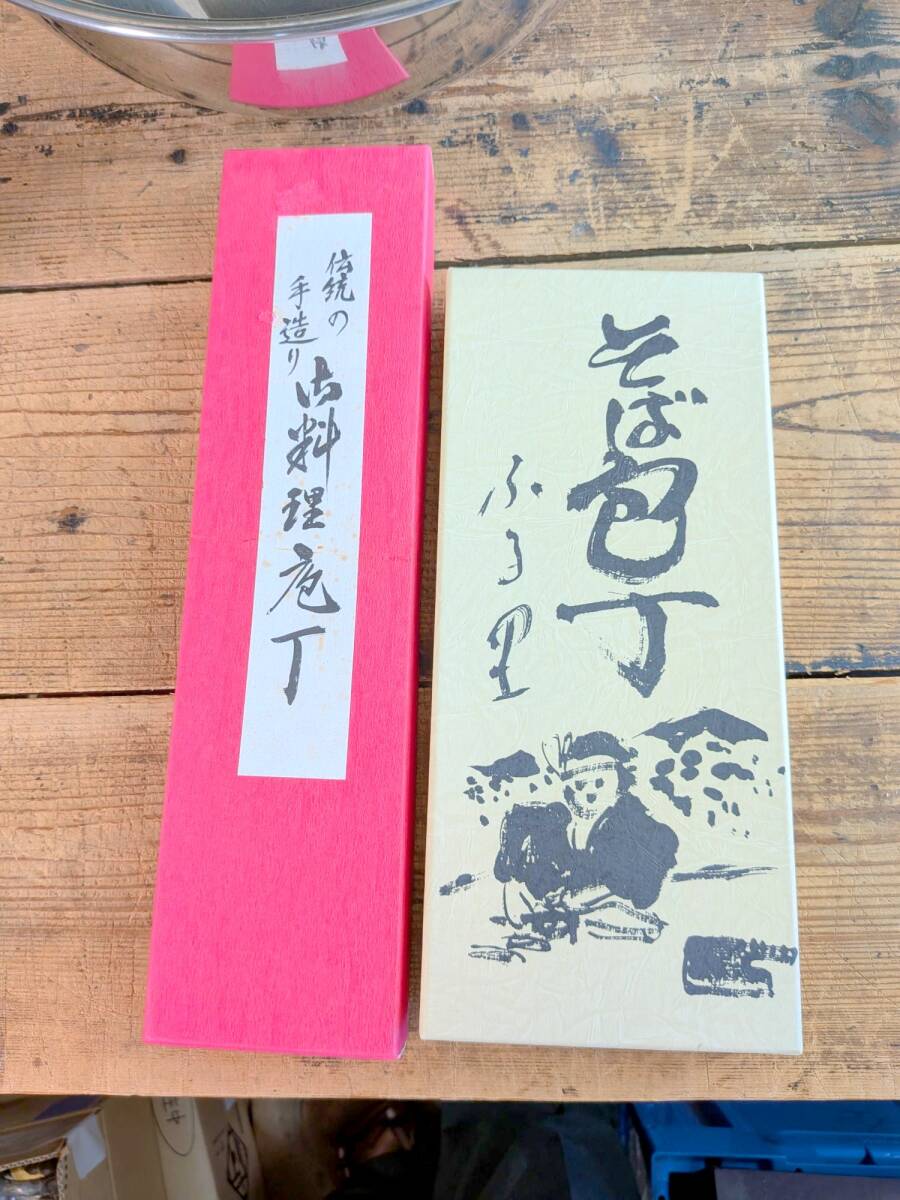 伝統の
手造り
御料理庖丁
そば包丁
ふる里